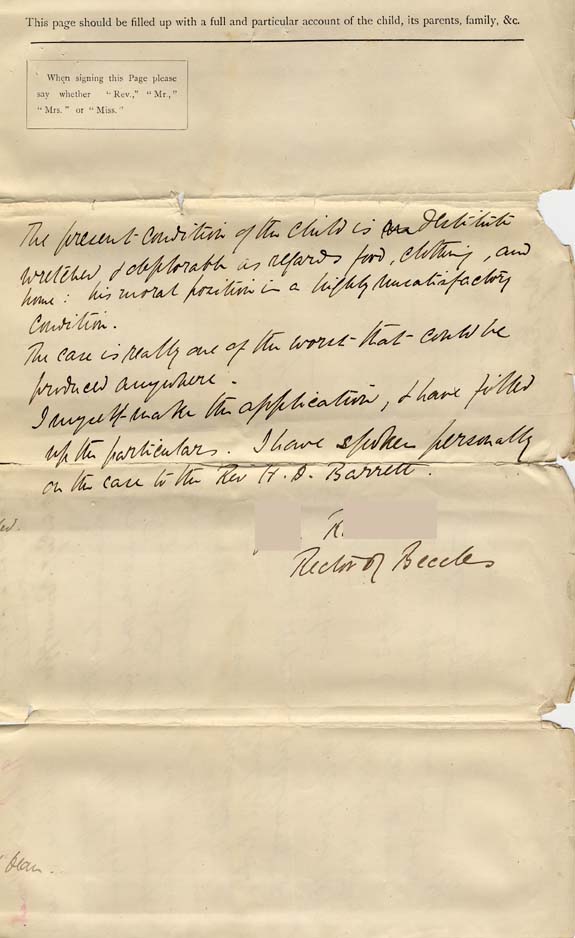 This page should be filled up with a full and particular account of the child, its parents, family, &c.
When signing this Page please
say whether "Rev.," "Mr.,"
"Mrs." or "Miss."
The present condition of the child is destitute
wretched & deplorable as regards food, clothing, and
home: his moral position in a highly unsatisfactory
condition.
The case is really one of the worst that could be
produced anywhere.
I myself make the application, & have filled
up the particulars. I have spoken personally
on the case to the Rev H. D. Barrett.
R.
Rector of Beccles
Dean.